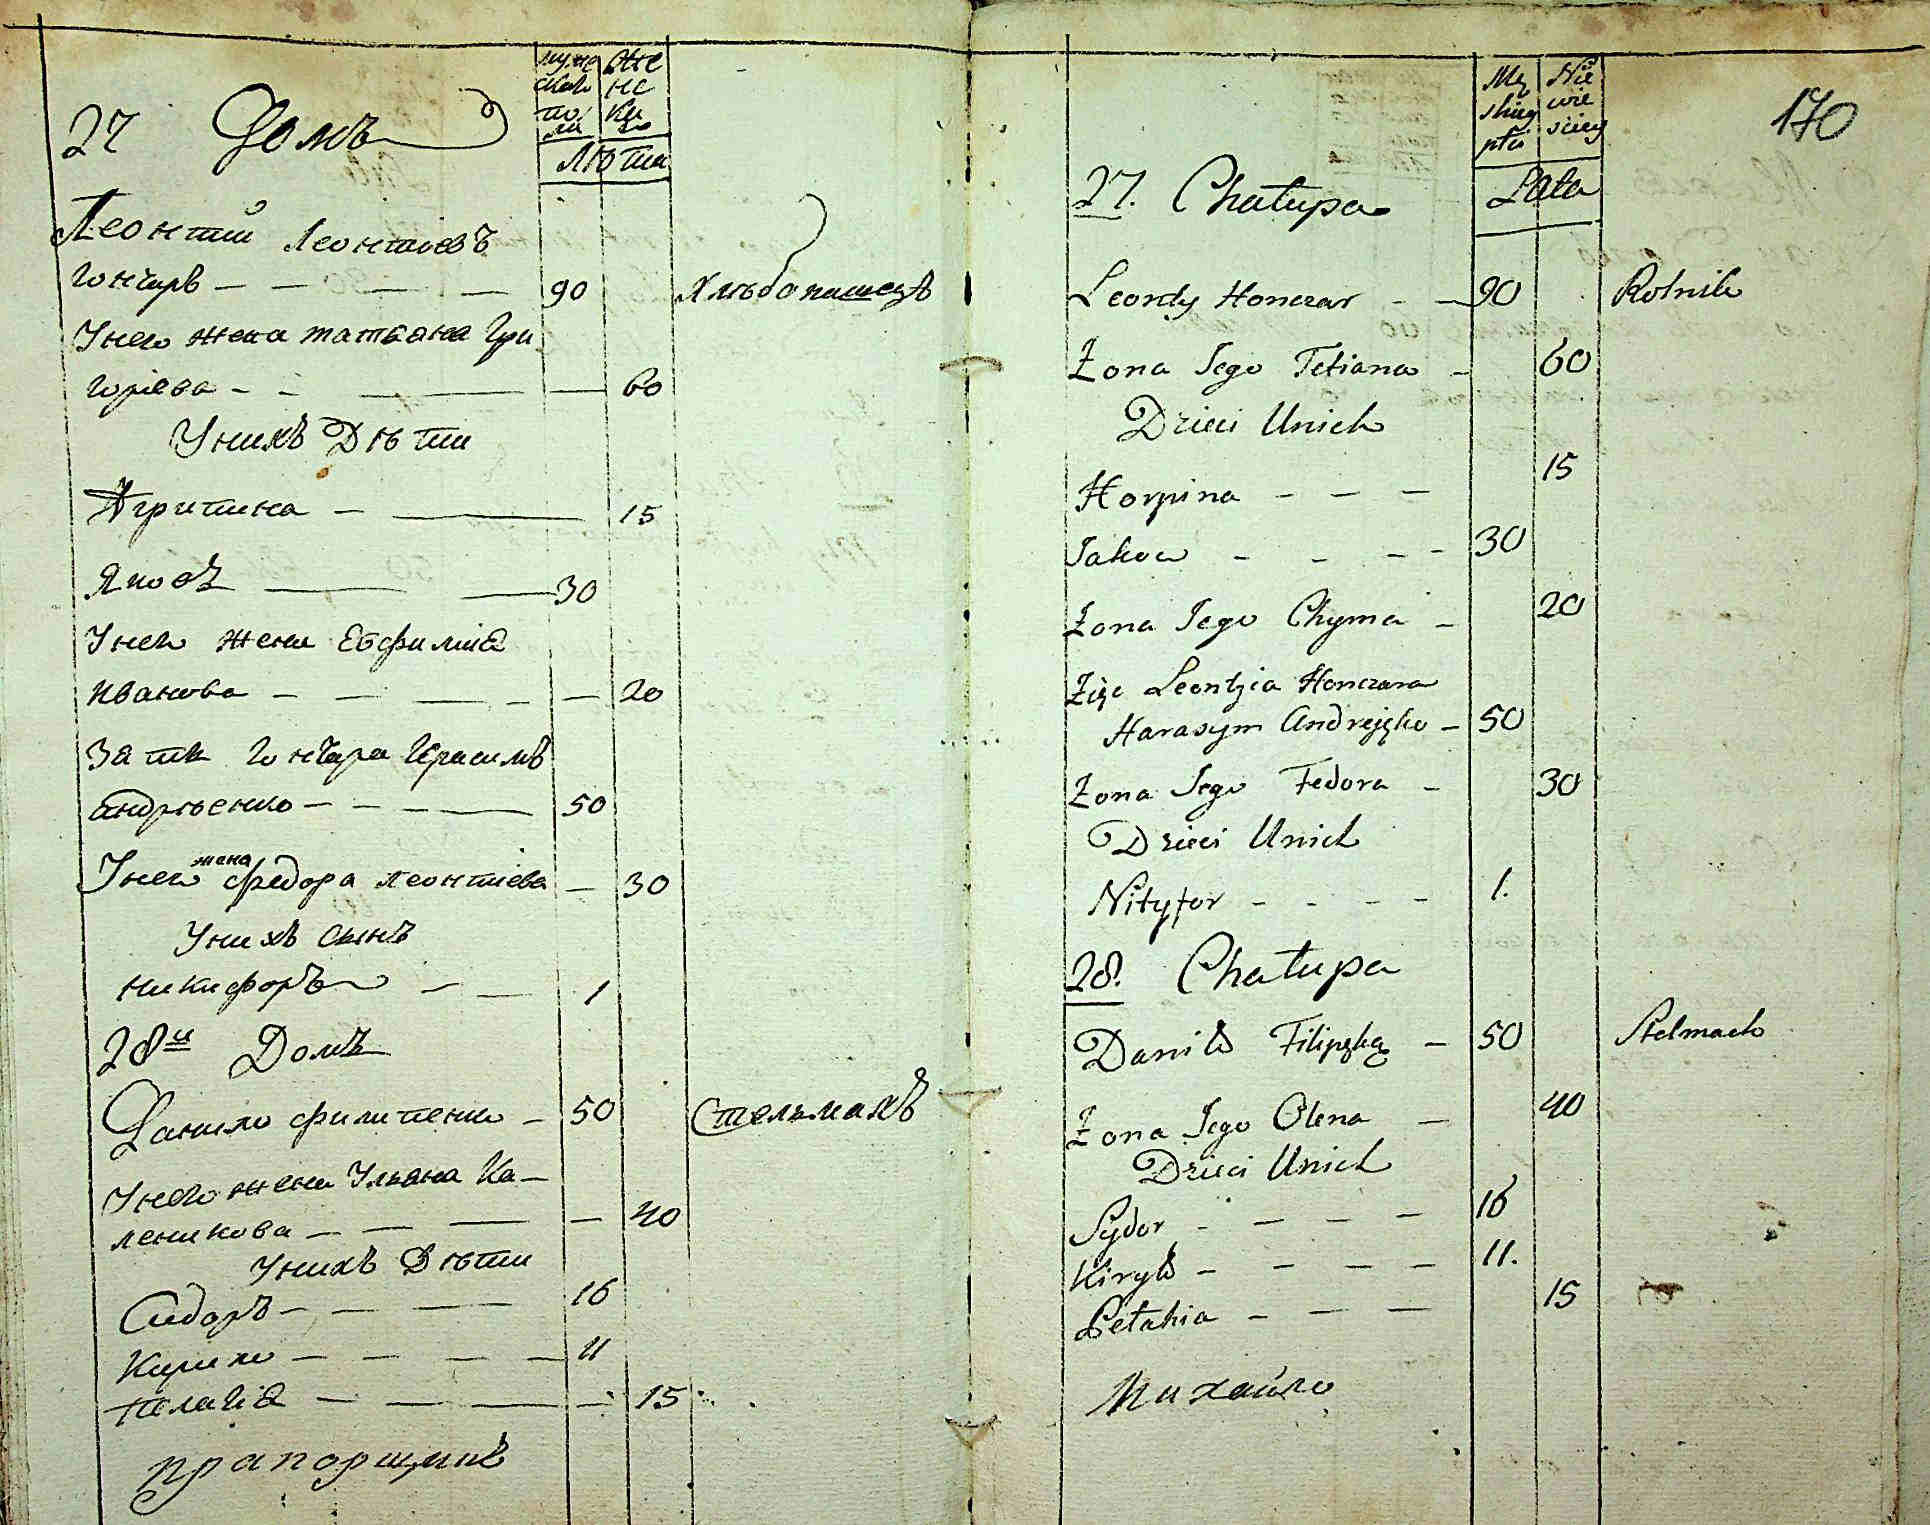 27 Домъ
муже
скаго
по
ла
Же
нс
ка
го
Лѣта
Леонтий Леонтіевъ
гончаръ — — — — 90 Хлѣбопашецъ
Унего жена татьяна Гри
горіева — — — — 60
Унихъ Дѣти
Агрипина — — 15
Яковъ — — 30
Унего жена Евфиміа
иванова — — — — 20
Зять гончара Герасимъ
андрѣенко — — — — 50
жена
Унего федора леонтіева — 30
Унихъ сынъ
никифоръ — — 1
28й Домъ
Данило филипенко — 50 Стельмахъ
Унего жена Ульяна Ка-
леникова — — — — 40
Унихъ Дѣти
Сидоръ — — — — 16
Кирило — — — — 11
пелагіа — — — — 15
прапорщикъ
170
Mę
skiey
płci
Nie
wie
sciey
Lata
27. Chałupa
Leonty Honczar — — 90 Rolnik
Żona Jego Tetiana — 60
Dzieci Unich
Horpina — — — 15
Jakow — — — — 30
Żona Jego Chyma — 20
Zięc Leontyia Honczara
Harasym Andrejęko — 50
Żona Jego Fedora — 30
Dzieci Unich
Nityfor — — — — 1.
28. Chałupa
Daniło Filipęką — 50 Stelmach
Żona Jego Olena — 40
Dzieci Unich
Sydor — — — — 16
Kiryło — — — — 11.
Pełahia — — — 15
Михайло